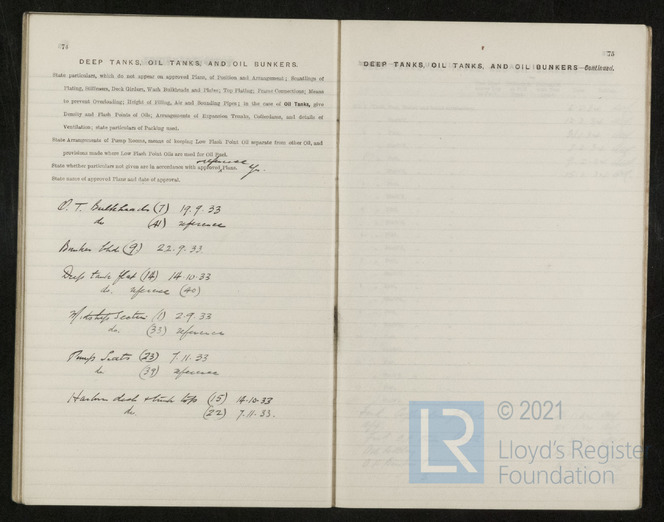 74
DEEP TANKS, OIL TANKS, AND OIL BUNKERS.
State particulars, which do not appear on approved Plans, of Position and Arrangement; Scantlings of
Plating, Stiffeners, Deck Girders, Wash Bulkheads and Plates; Top Plating; Frame Connections; Means
to prevent Overloading; Height of Filling, Air and Sounding Pipes; in the case of Oil Tanks, give
Density and Flash Points of Oils; Arrangements of Expansion Trunks, Cofferdams, and details of
Ventilation; state particulars of Packing used.
State Arrangements of Pump Rooms, means of keeping Low Flash Point Oil separate from other Oil, and
provisions made where Low Flash Point Oils are used for Oil Fuel.
reference
State whether particulars not given are in accordance with approved Plans. Yes.
State name of approved Plans and date of approval.
O. T. Bulkheads (7) 19.9.33
do (41) reference
Bunker Bhd (9) 22.9.33.
Deep tank flat (14) 14.10.33
do. reference (40)
Midship Section (1) 2.9.33
do. (33) reference
Pump Seats (23) 7.11.33
do (39) reference
deck & tank tops (15) 14.10.33
do (22) 7.11.33.
75
DEEP TANKS, OIL TANKS, AND OIL BUNKERS—Continued.
LR
© 2021
Lloyd's Register
Foundation